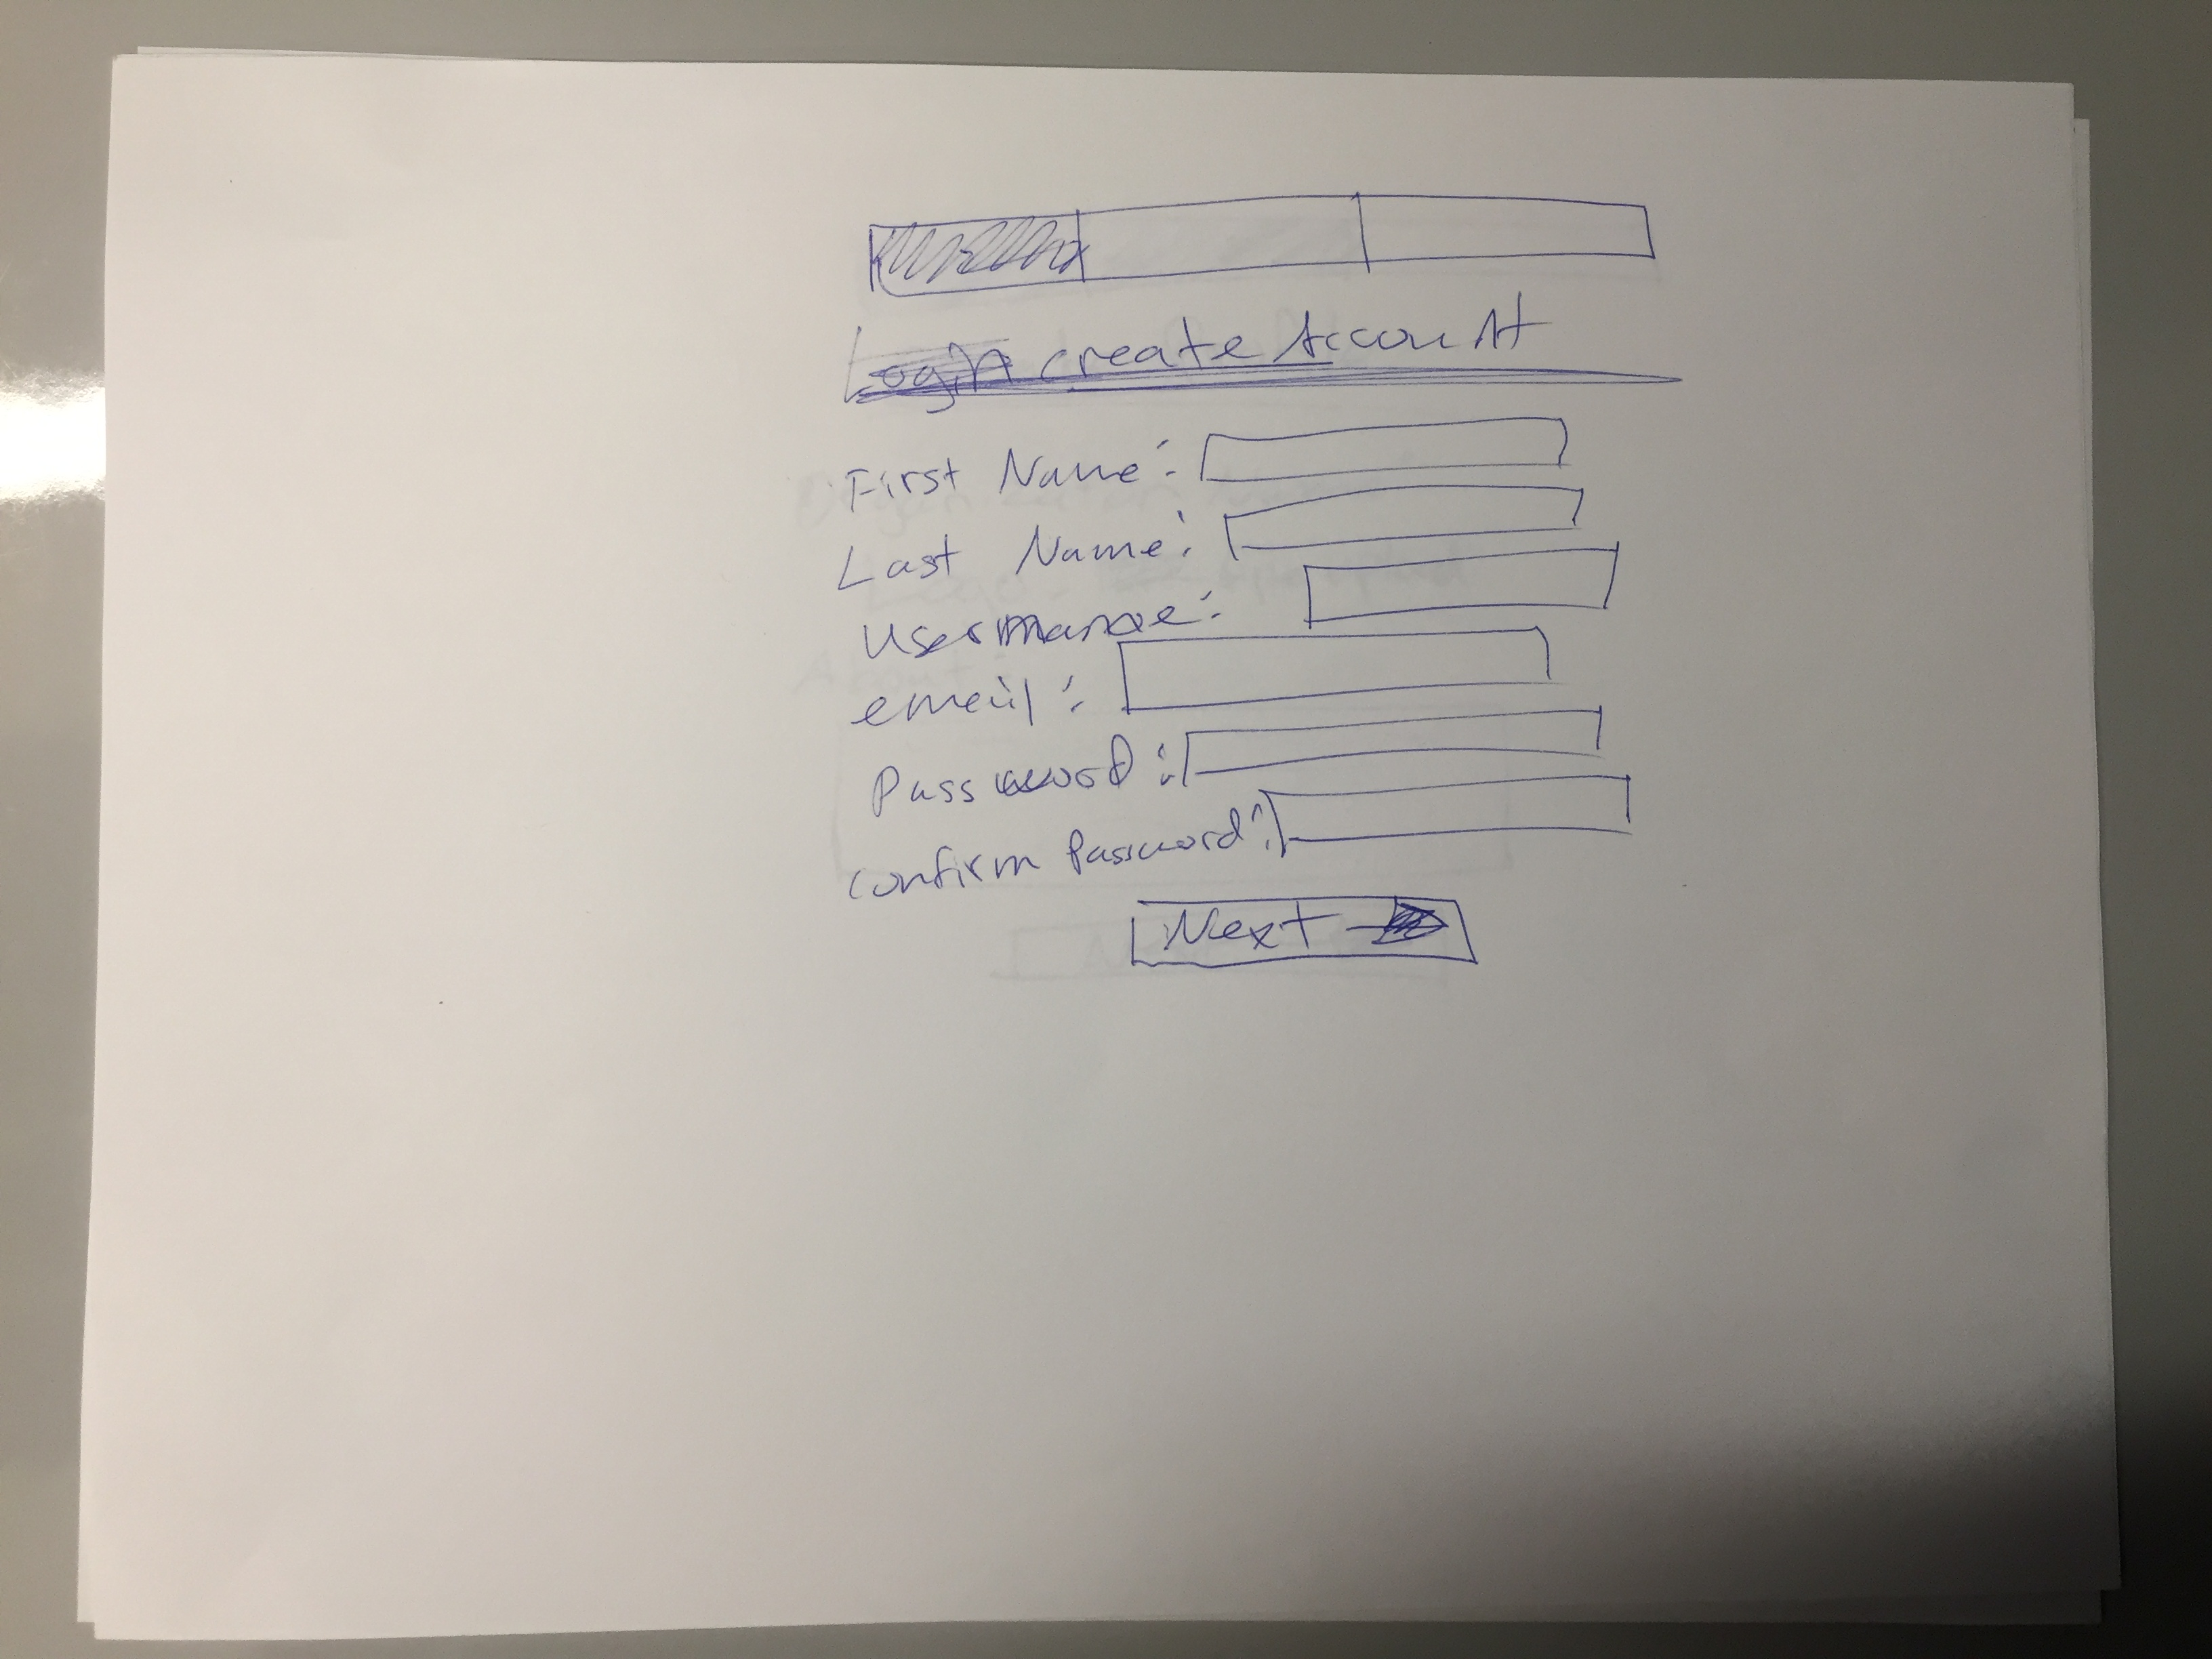 Login Create Account
First Name:
Last Name:
Username:
email:
Password:
Confirm Password:
Next